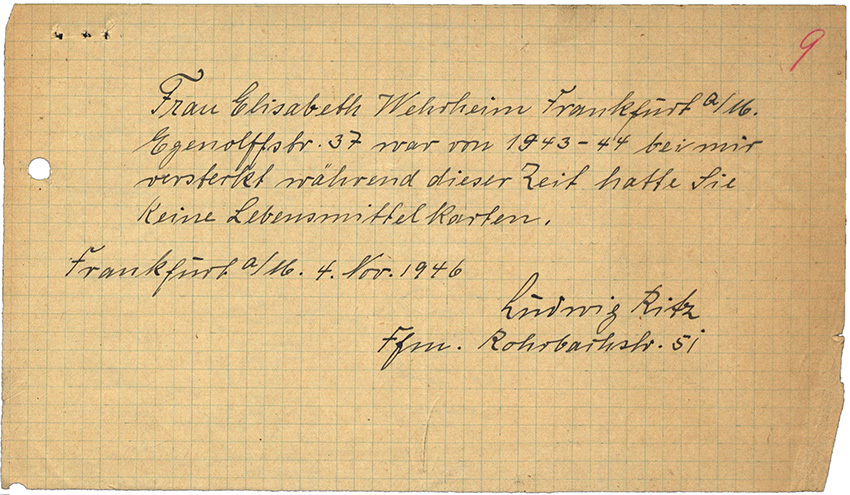 9
Frau Elisabeth Wehrheim Frankfurt a/M.
Egenolffstr. 37 war von 1943-44 bei mir
versteckt während dieser Zeit hatte Sie
keine Lebensmittelkarten.
Frankfurt a/M. 4. Nov. 1946
Ludwig Ritz
Ffm. Rohrbachstr. 51